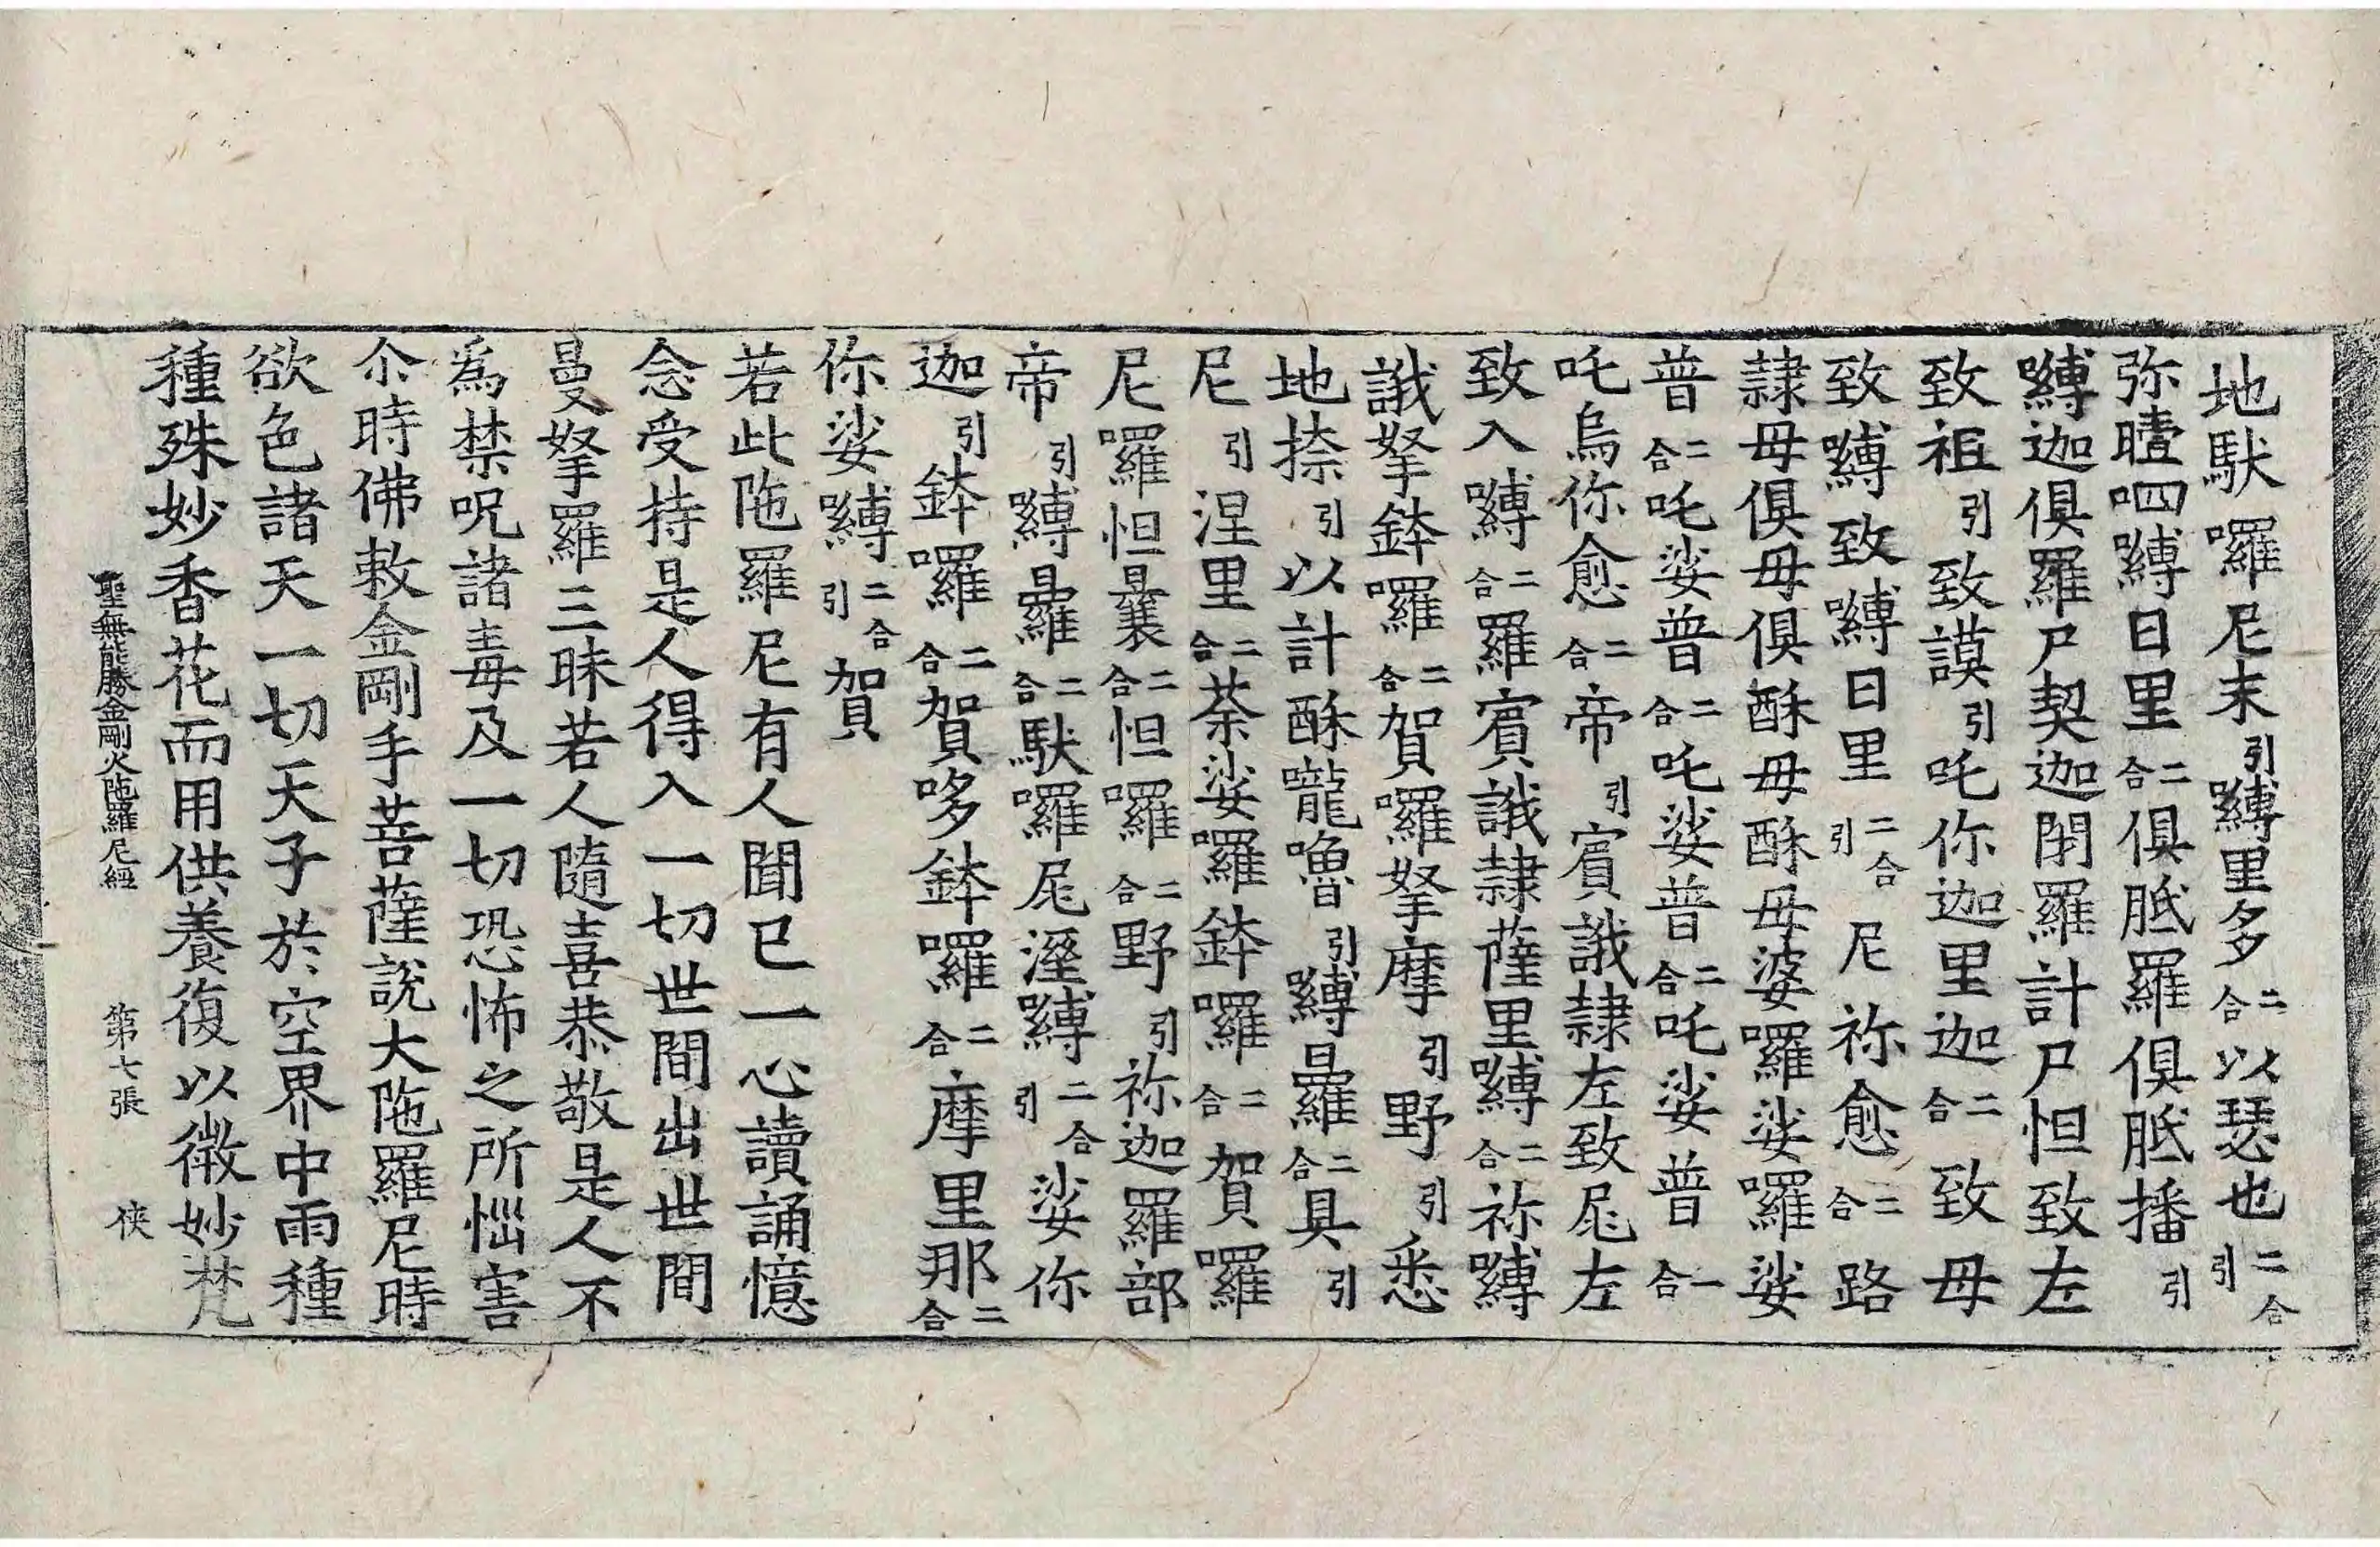 地馱囉尼末引嚩里多二合以瑟也二合引
弥瞦呬嚩日里二合俱胝羅俱胝播引
嚩迦俱羅尸契迦閉羅計尸怛致左
致祖引致謨引吒你迦里迦二合致母
致嚩致嚩日里二合引尼祢愈二合路
隷母俱毋俱酥母酥母婆囉娑囉娑
普二合吒娑普二合吒娑普二合吒娑普一合
吒烏你愈二合帝引賔誐隷左致㞾左
致入嚩二合羅賔誐隷薩里嚩二合祢嚩
誐拏鉢囉二合賀囉拏摩引野引悉
地捺引以計酥嚨嚕引嚩曪二合具引
尼引涅里二合荼娑囉鉢囉二合賀囉
尼囉怛曩二合怛囉二合野引祢迦羅部
帝引嚩曪二合馱囉㞾溼嚩二合引娑你
迦引鉢囉二合賀哆鉢囉二合摩里那二合
你娑嚩二合引賀
若此陁羅尼有人聞已一心讀誦憶
念受持是人得入一切世間出世間
曼拏羅三昧若人隨喜恭敬是人不
為禁呪諸毒及一切恐怖之所惱害
尒時佛敕金剛手菩薩說大陁羅尼時
欲色諸天一切天子於空界中雨種
種殊妙香花而用供養復以微妙梵
聖無能勝金剛火陁羅尼經　第七張　俠